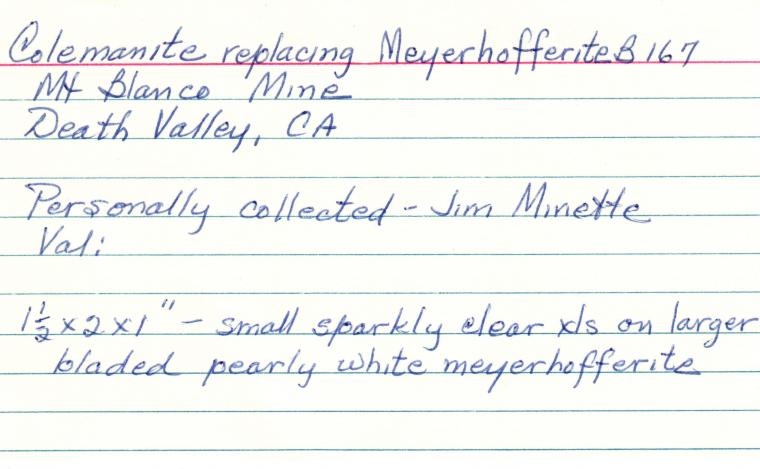 Colemanite replacing Meyerhofferite B 167
Mt Blanco Mine
Death Valley, CA
Personally collected - Jim Minette
Val:
1 1/2 x 2 x 1" - small sparkly clear xls on larger
bladed pearly white meyerhofferite